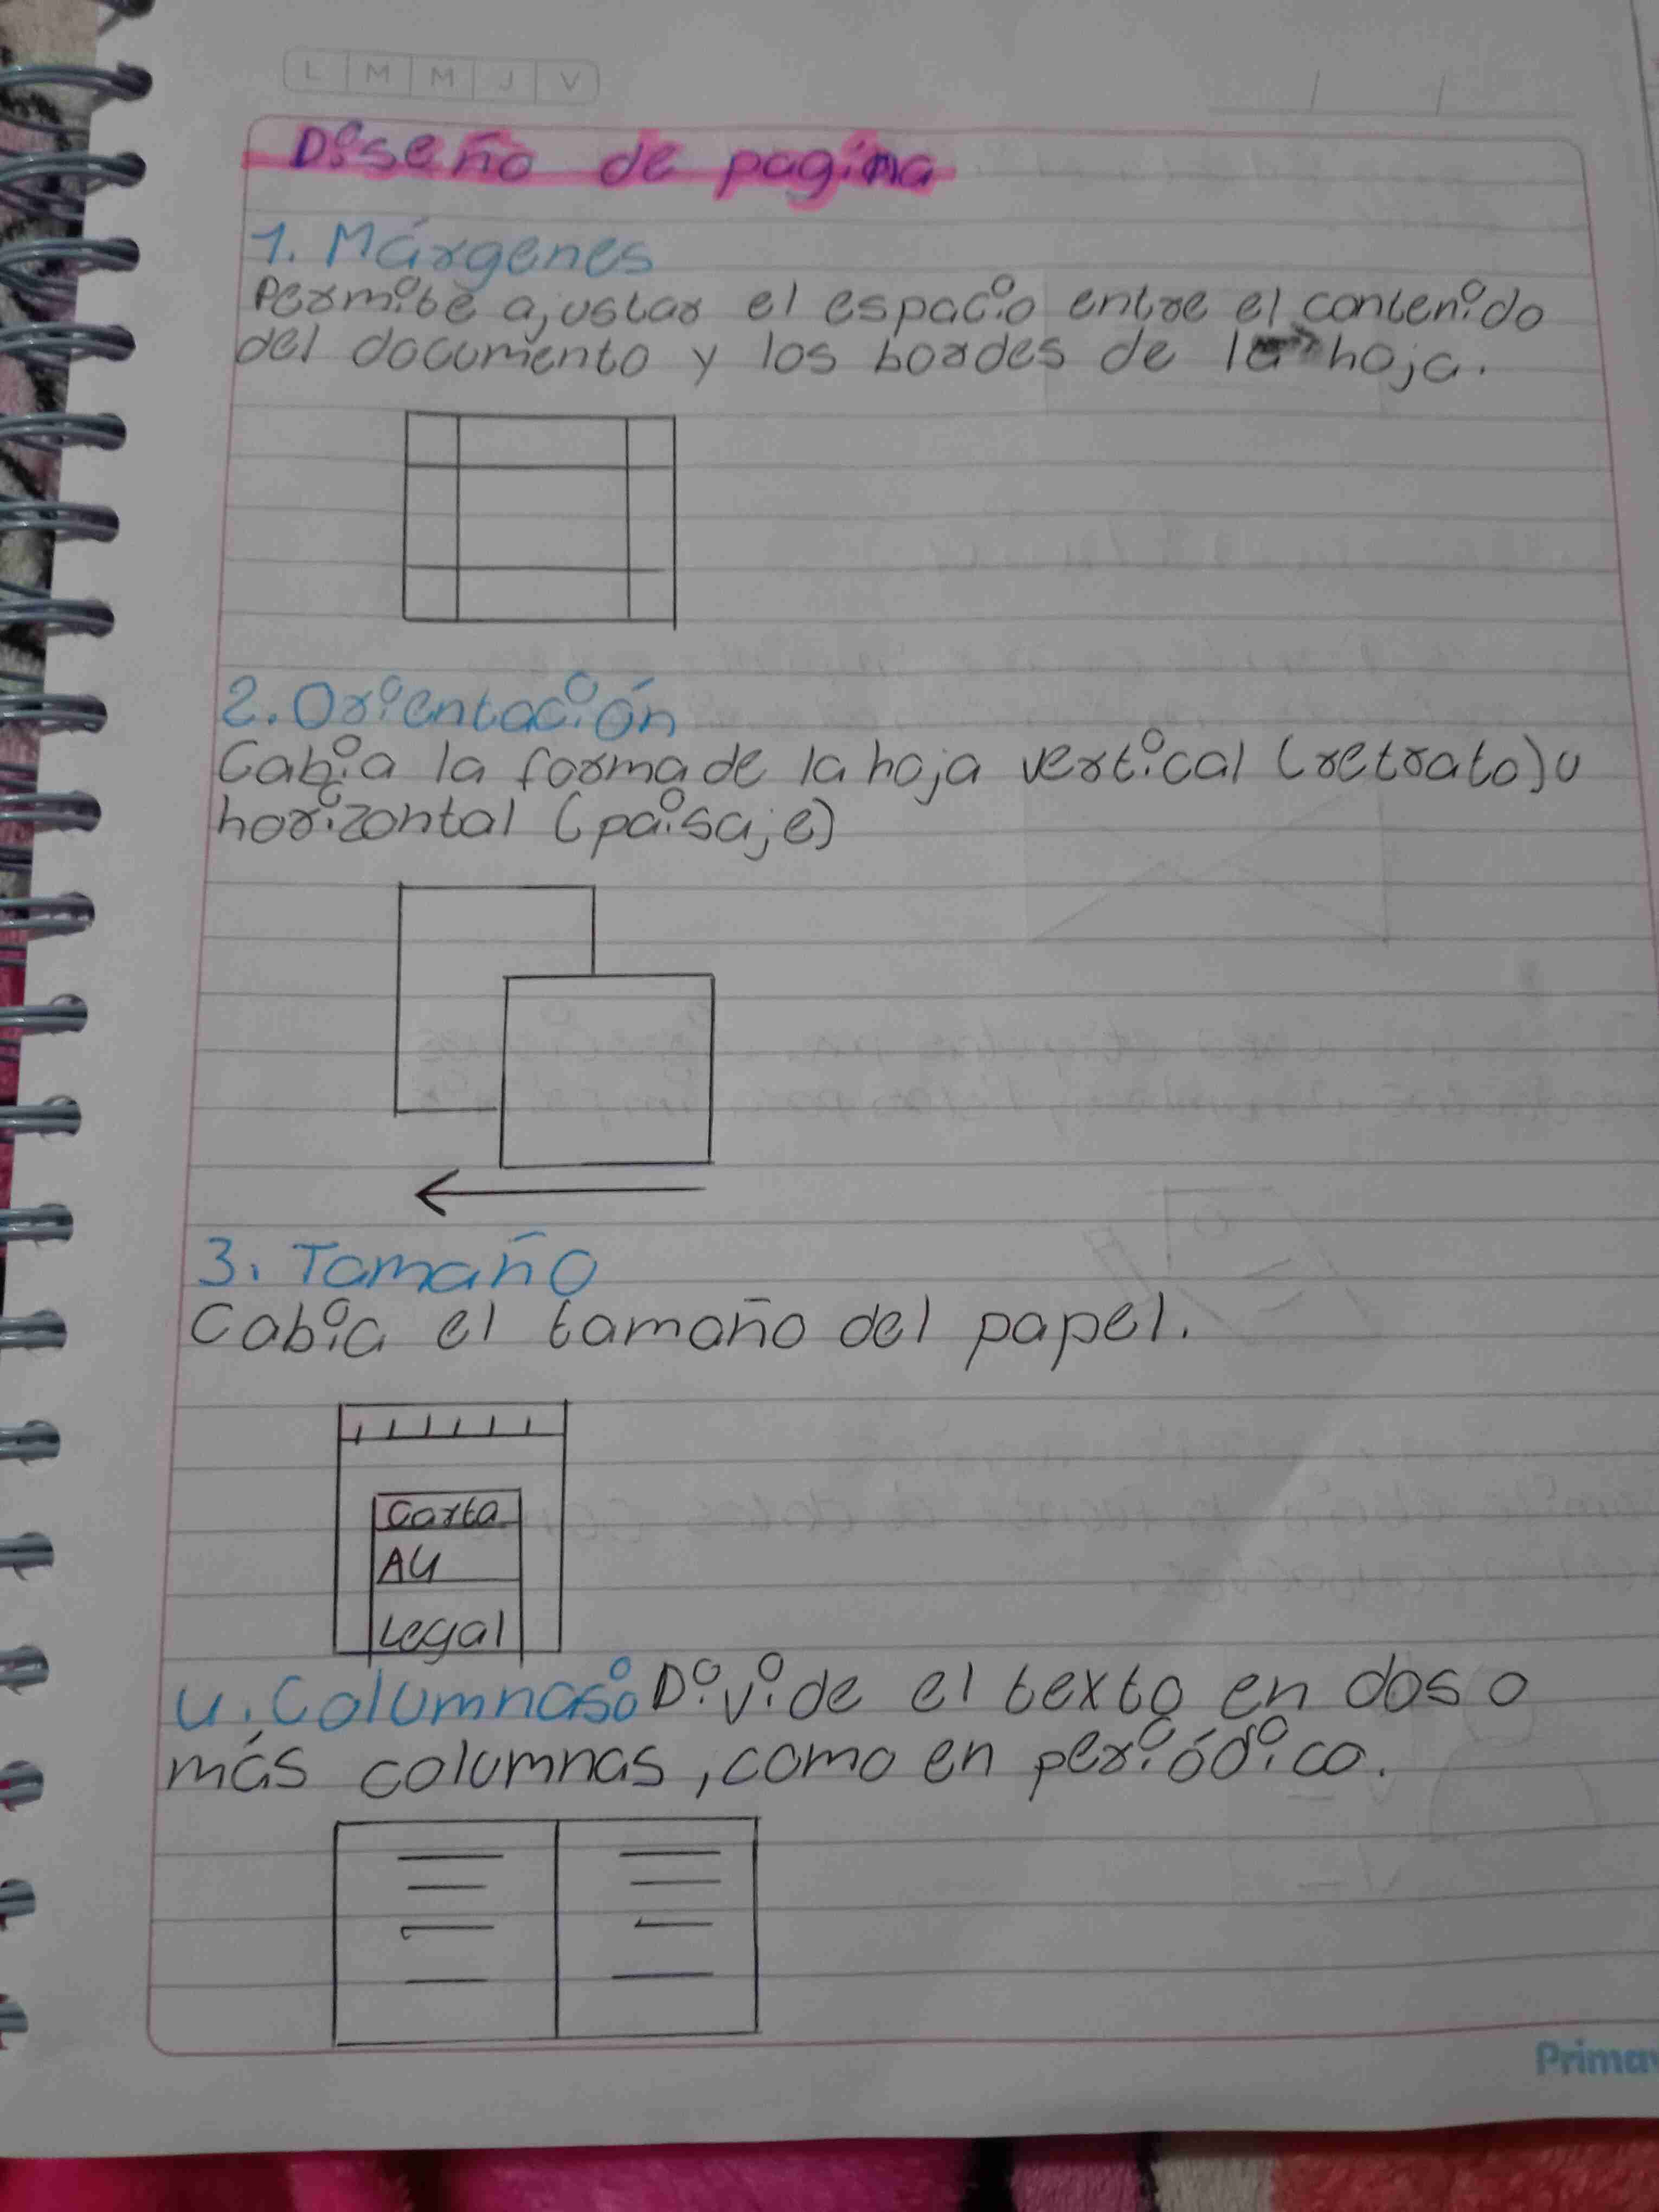 L M M J V
Diseño de pagina
1. Márgenes
Permite ajustar el espacio entre el contenido
del documento y los bordes de la hoja.
2. Orientación
Cabia la forma de la hoja vertical (retrato) u
horizontal (paisaje)
3. Tamaño
Cabia el tamaño del papel.
Carta
A4
Legal
4. Columnas: Divide el texto en dos o
más columnas, como en periódico.